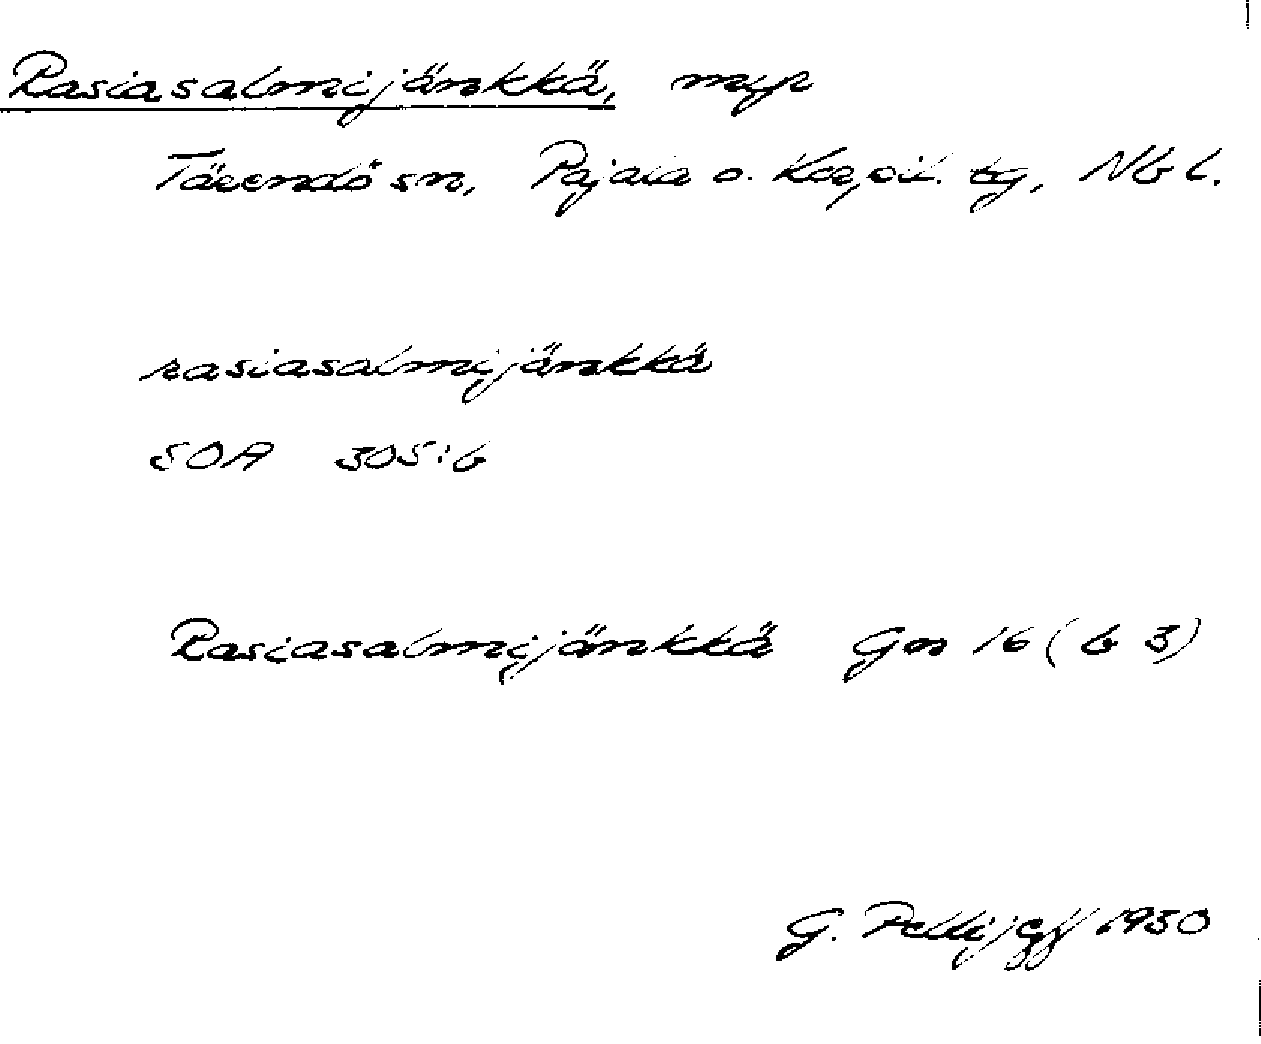 Rasiasalmijänkkä, myr
Tärendö sn, Pajala o. Korpil. tg, Nbl.
rasiasalmijänkkä
SOA 305:6
Rasiasalmijänkkä Gm 16 (b 3)
G. Pellijeff 1950